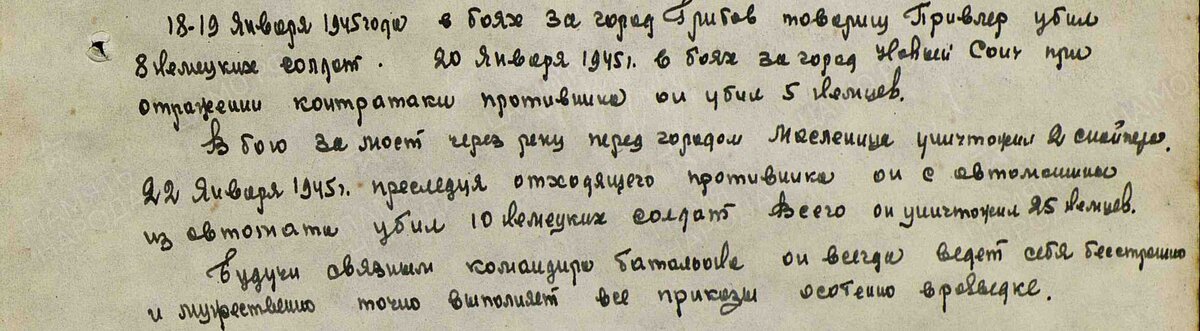 18-19 Января 1945 года в боях за город Грибов товарищ Привлер убил
8 немецких солдат. 20 Января 1945г. в боях за город Новый Сонч при
отражении контратаки противника он убил 5 немцев.
В бою за мост через реку перед городом Масленица уничтожил 2 снайпера.
22 Января 1945г. преследуя отходящего противника он с автомашины
из автомата убил 10 немецких солдат Всего он уничтожил 25 немцев.
Будучи связным командира батальона он всегда ведет себя бесстрашно
и мужественно точно выполняет все приказы особенно в разведке.